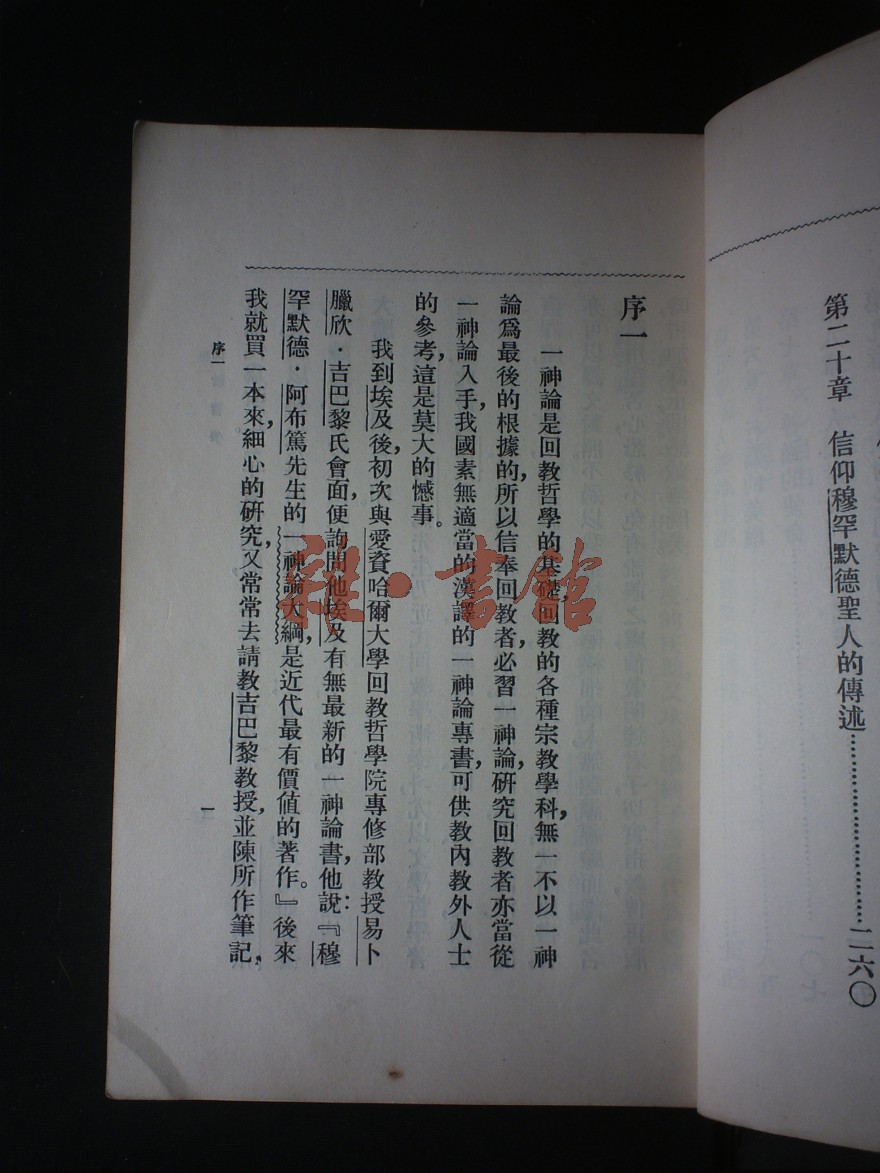 第二十章　信仰穆罕默德聖人的傳述……………………二六〇
序一
一神論是回教哲學的基礎，回教的各種宗教學科，無一不以一神
論爲最後的根據的，所以信奉回教者必習一神論，研究回教者亦當從
一神論入手，我國素無適當的漢譯的一神論專書，可供教內教外人士
的參考，這是莫大的憾事。
我到埃及後，初次與愛資哈爾大學回教哲學院專修部教授易卜
臘欣·吉巴黎氏會面，便詢問他埃及有無最新的一神論書，他說：『穆
罕默德·阿布篤先生的一神論大綱，是近代最有價值的著作。』後來
我就買一本來，細心的研究，又常常去請教吉巴黎教授，並陳所作筆記，
序一
一
雜·書館